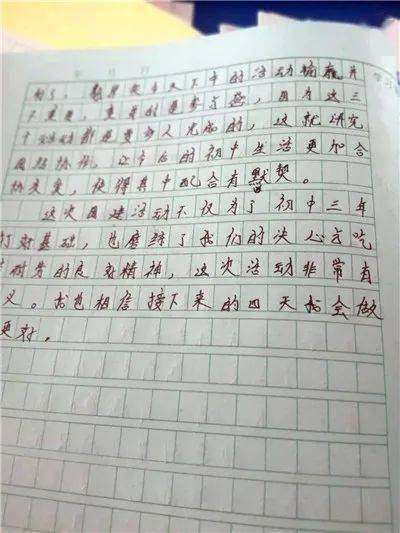 年 月 日
学习
的了，数我安今天下午的活动输赢并
不重要，重要的是参了与，因为这三
个活动都是要多人完成的，这就讲究
团结协作，让今后的初中生活更加合
作友爱，使得其中配合有默契。
这次团建活动不仅为了初中三年
打好基础，也磨练了我们的决心与吃
苦耐劳的良好精神，这次活动非常有
义。我也相信接下来的四天我会做
更好。